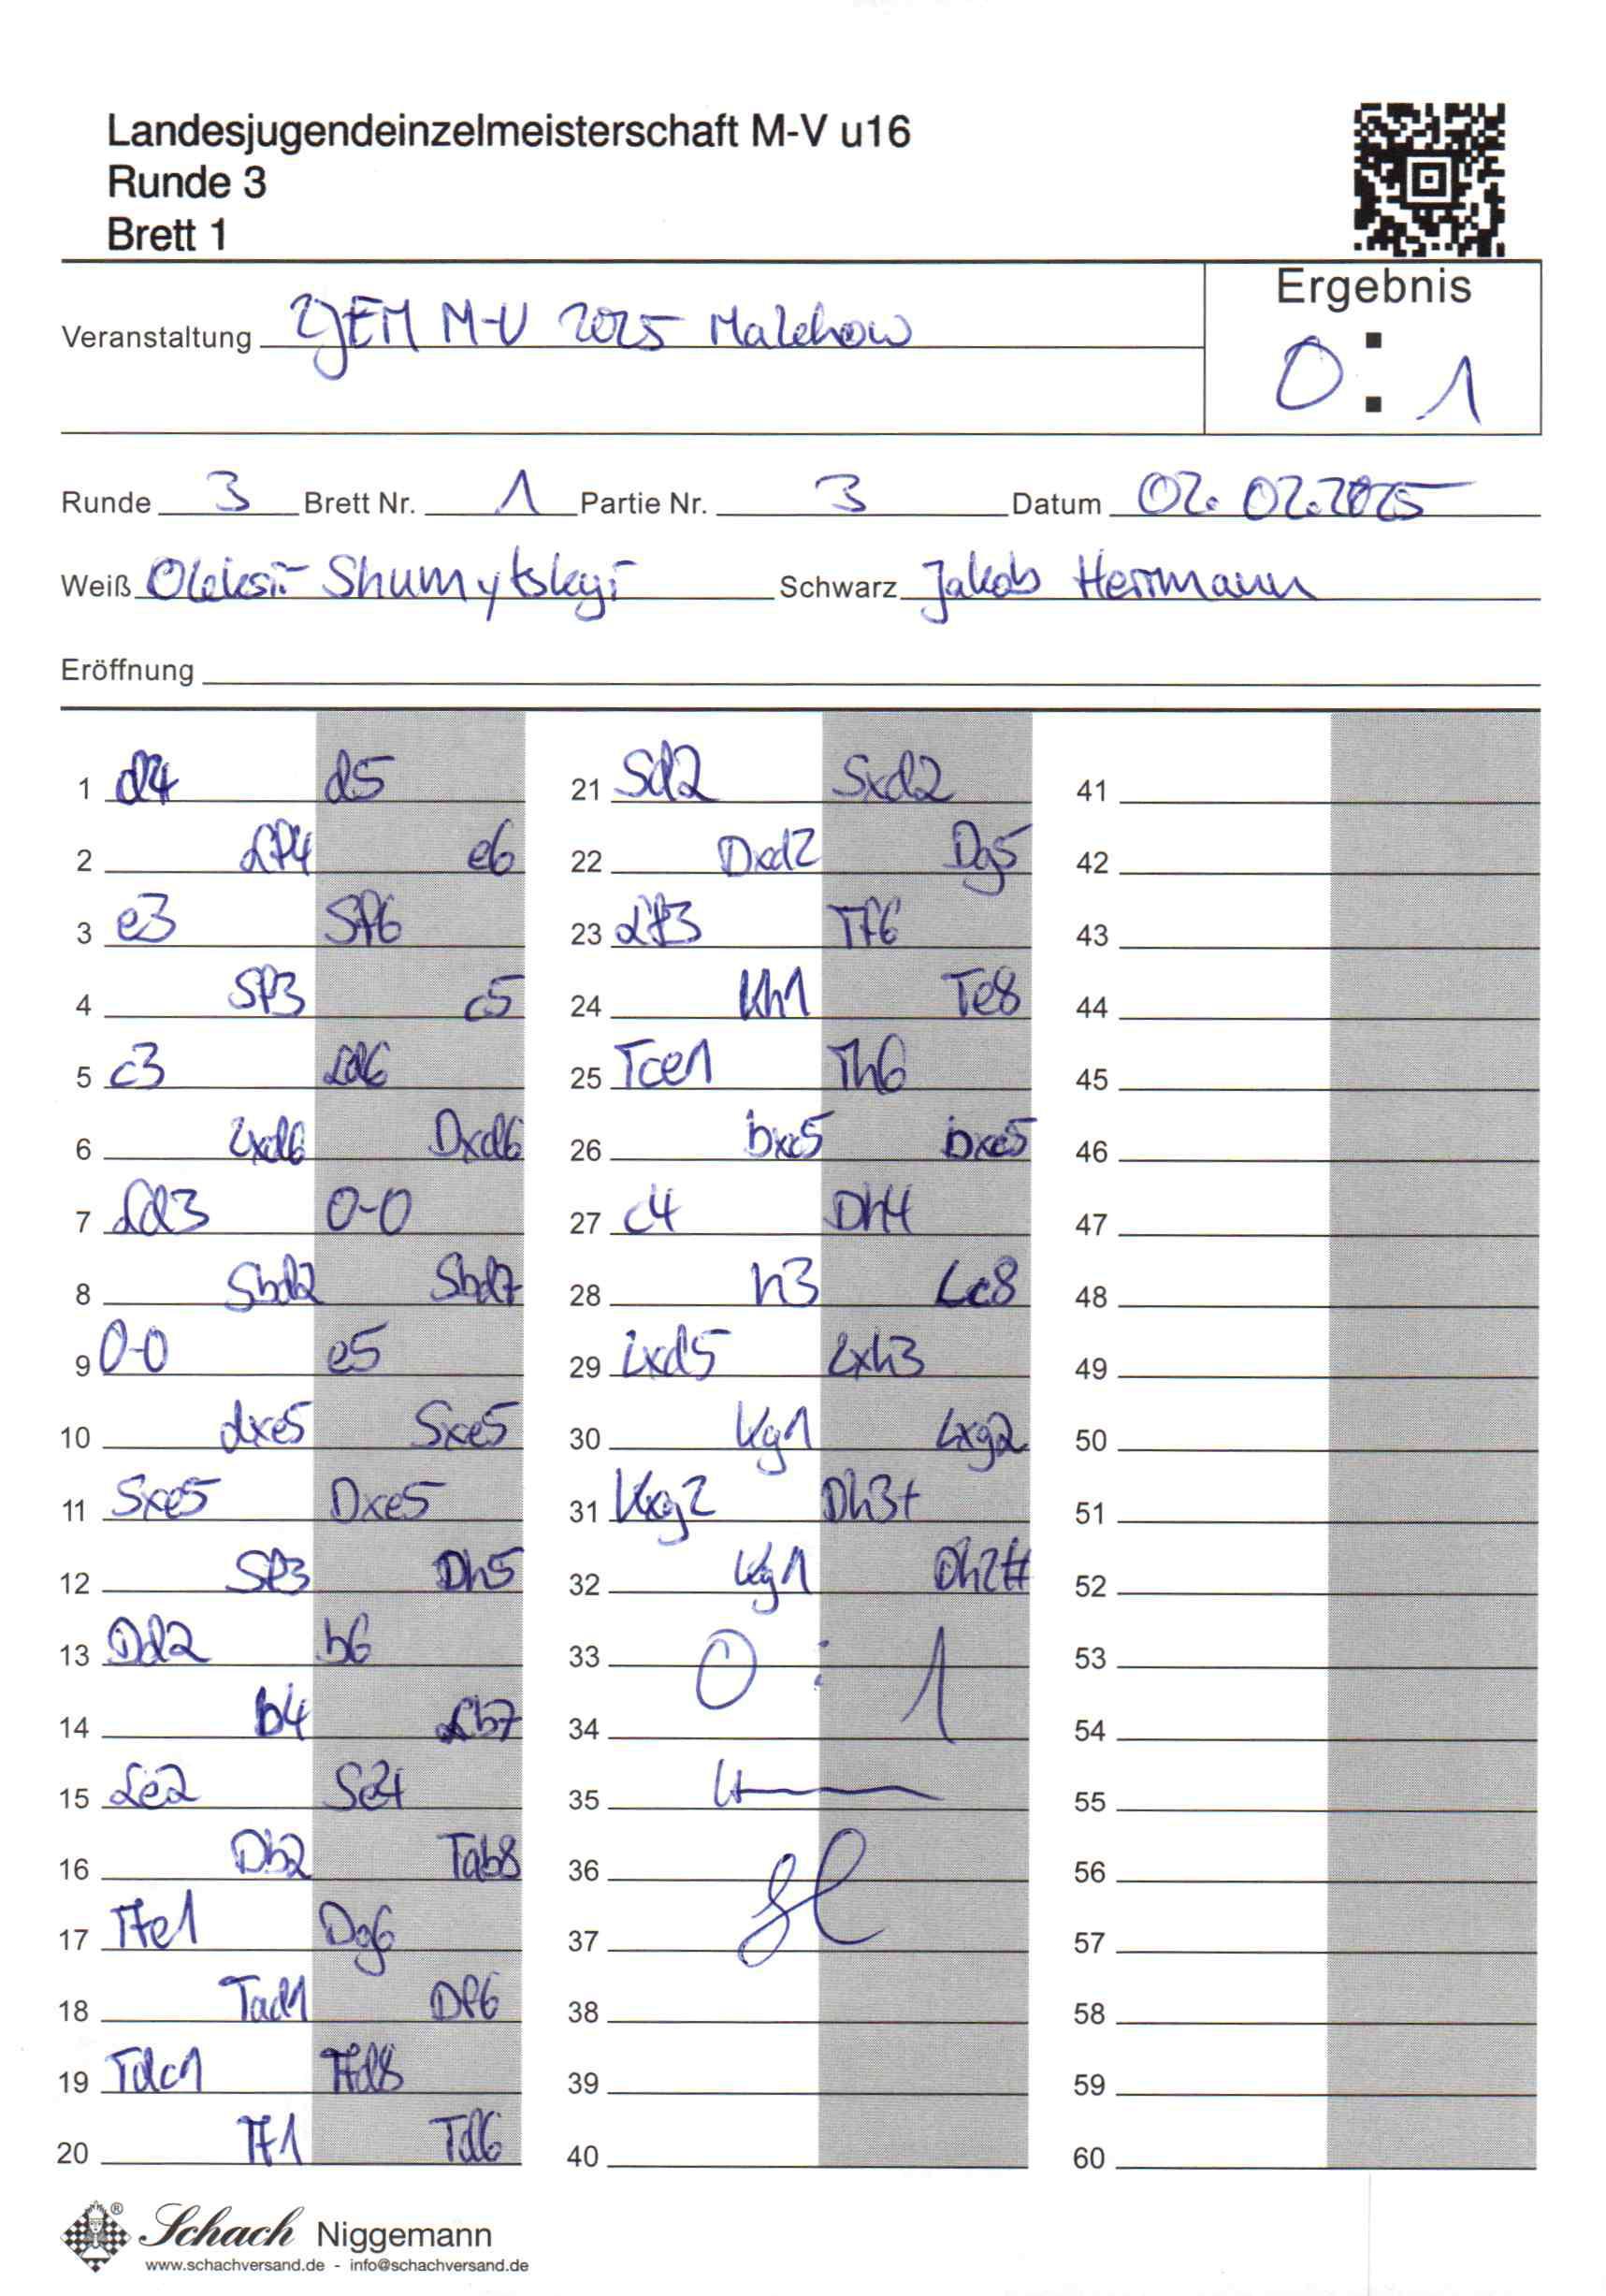 Landesjugendeinzelmeisterschaft M-V u16
Runde 3
Brett 1
Veranstaltung LJEM M-V 2025 Malchow
Ergebnis
0 : 1
Runde 3 Brett Nr. 1 Partie Nr. 3 Datum 02.02.2025
Weiß Oleksii Shumytskyi Schwarz Jakob Herrmann
Eröffnung
1 d4 d5 21 Sd2 Sxd2 41
2 Lf4 e6 22 Dxd2 Dg5 42
3 e3 Sf6 23 Lf3 Tf6 43
4 Sf3 c5 24 Kh1 Te8 44
5 c3 Ld6 25 Tce1 Th6 45
6 Lxd6 Dxd6 26 bxc5 bxc5 46
7 Ld3 0-0 27 c4 Dh4 47
8 Sbd2 Sbd7 28 h3 Lc8 48
9 0-0 e5 29 Lxd5 Lxh3 49
10 dxe5 Sxe5 30 Kg1 Lxg2 50
11 Sxe5 Dxe5 31 Kxg2 Dh3+ 51
12 Sf3 Dh5 32 Kg1 Dh2# 52
13 Dd2 b6 33 0 : 1 53
14 b4 Lb7 34 54
15 Le2 Se4 35 55
16 Db2 Tab8 36 56
17 Tfe1 Dg6 37 57
18 Tad1 Df6 38 58
19 Tdc1 Tfd8 39 59
20 Tf1 Td6 40 60
Schach Niggemann
www.schachversand.de - info@schachversand.de